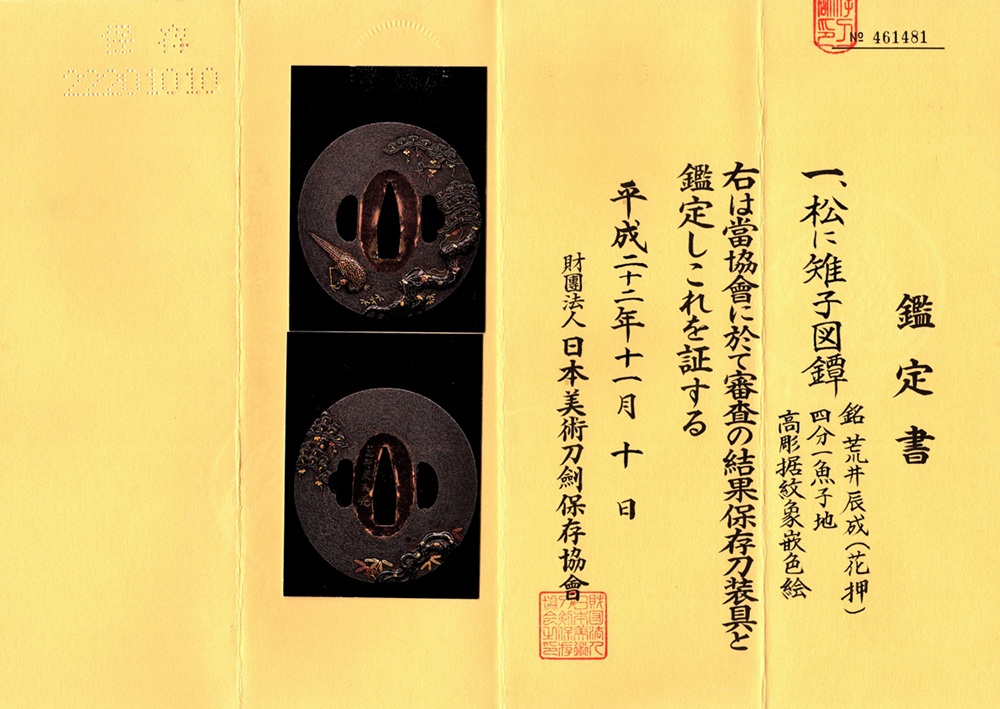 № 461481
鑑定書
一、松に雉子図鐔
銘 荒井辰成(花押)
四分一魚子地
高彫据紋象嵌色絵
右は當協會に於て審査の結果保存刀装具と
鑑定しこれを証する
平成二十二年十一月 十 日
財團法人日本美術刀劍保存協會
保存
22201010